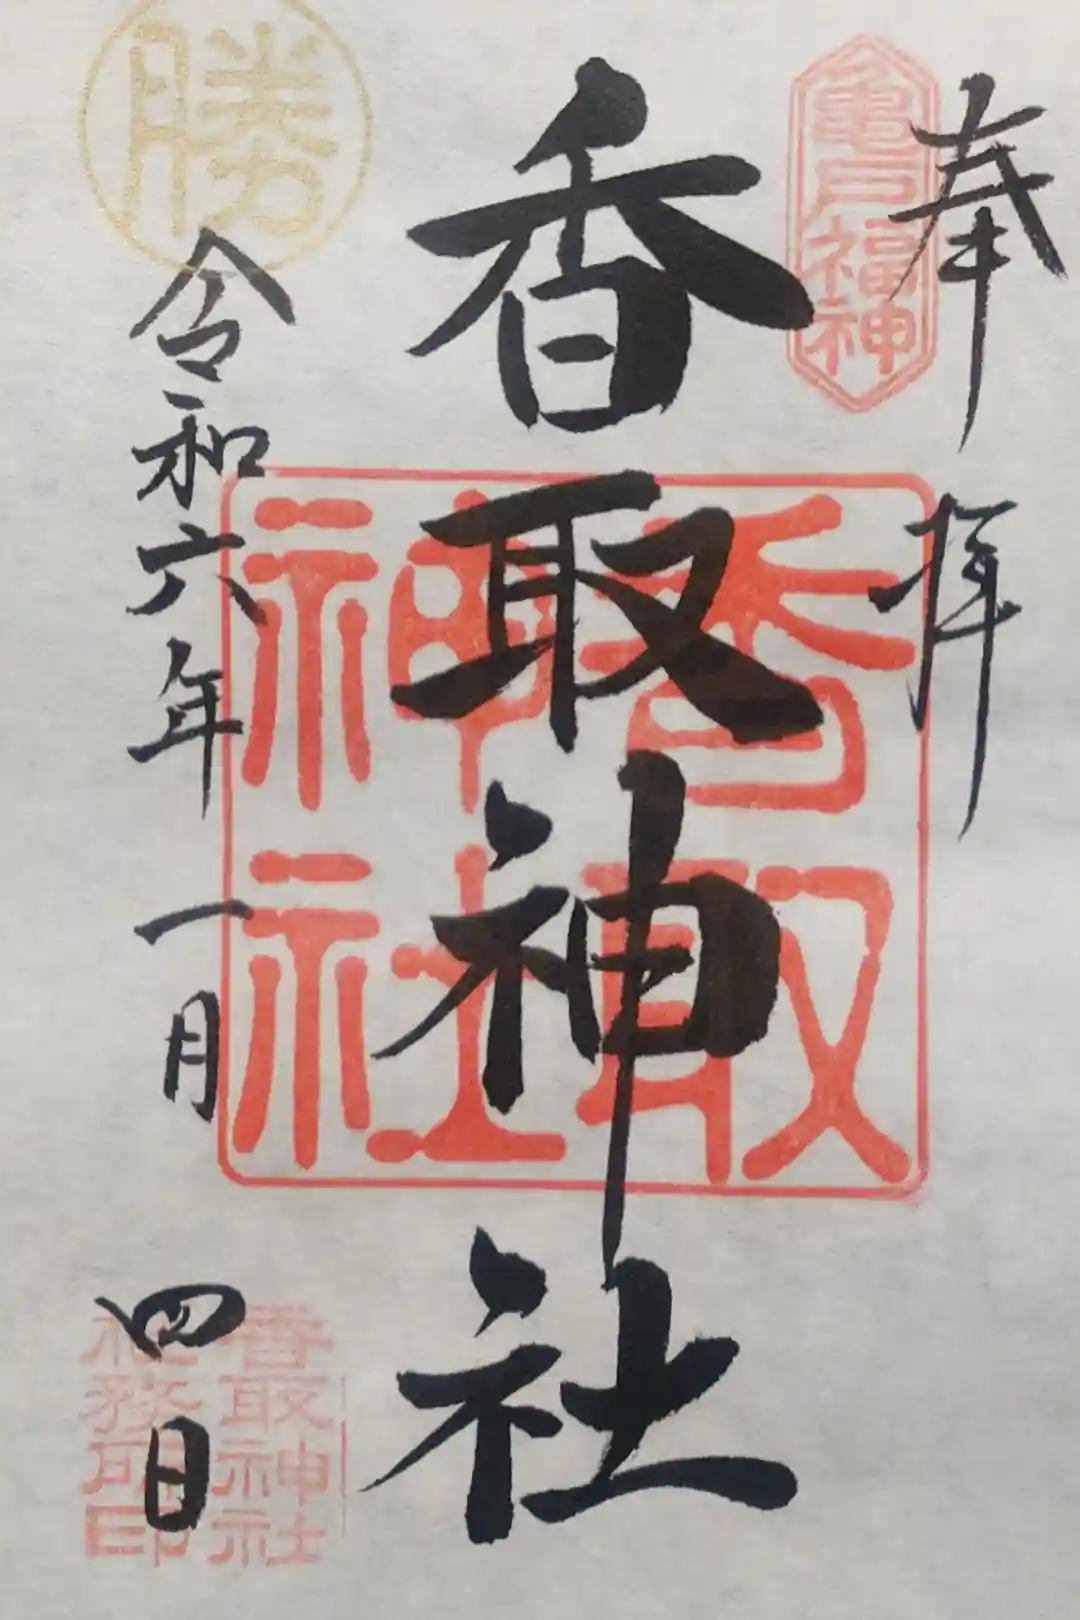 奉拝
亀戸
福神
香取神社
香取
神社
勝
令和六年一月四日
香取神社
社務所印